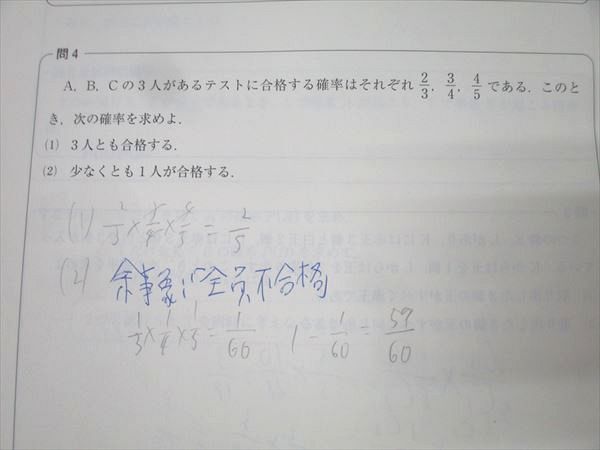 問4
A, B, Cの3人があるテストに合格する確率はそれぞれ 2/3, 3/4, 4/5 である. このと
き, 次の確率を求めよ.
(1) 3人とも合格する.
(2) 少なくとも1人が合格する.
(1) 2/3 × 3/4 × 4/5 = 2/5
(2) 余事象は「全員不合格
1/3 × 1/4 × 1/5 = 1/60 1 - 1/60 = 59/60